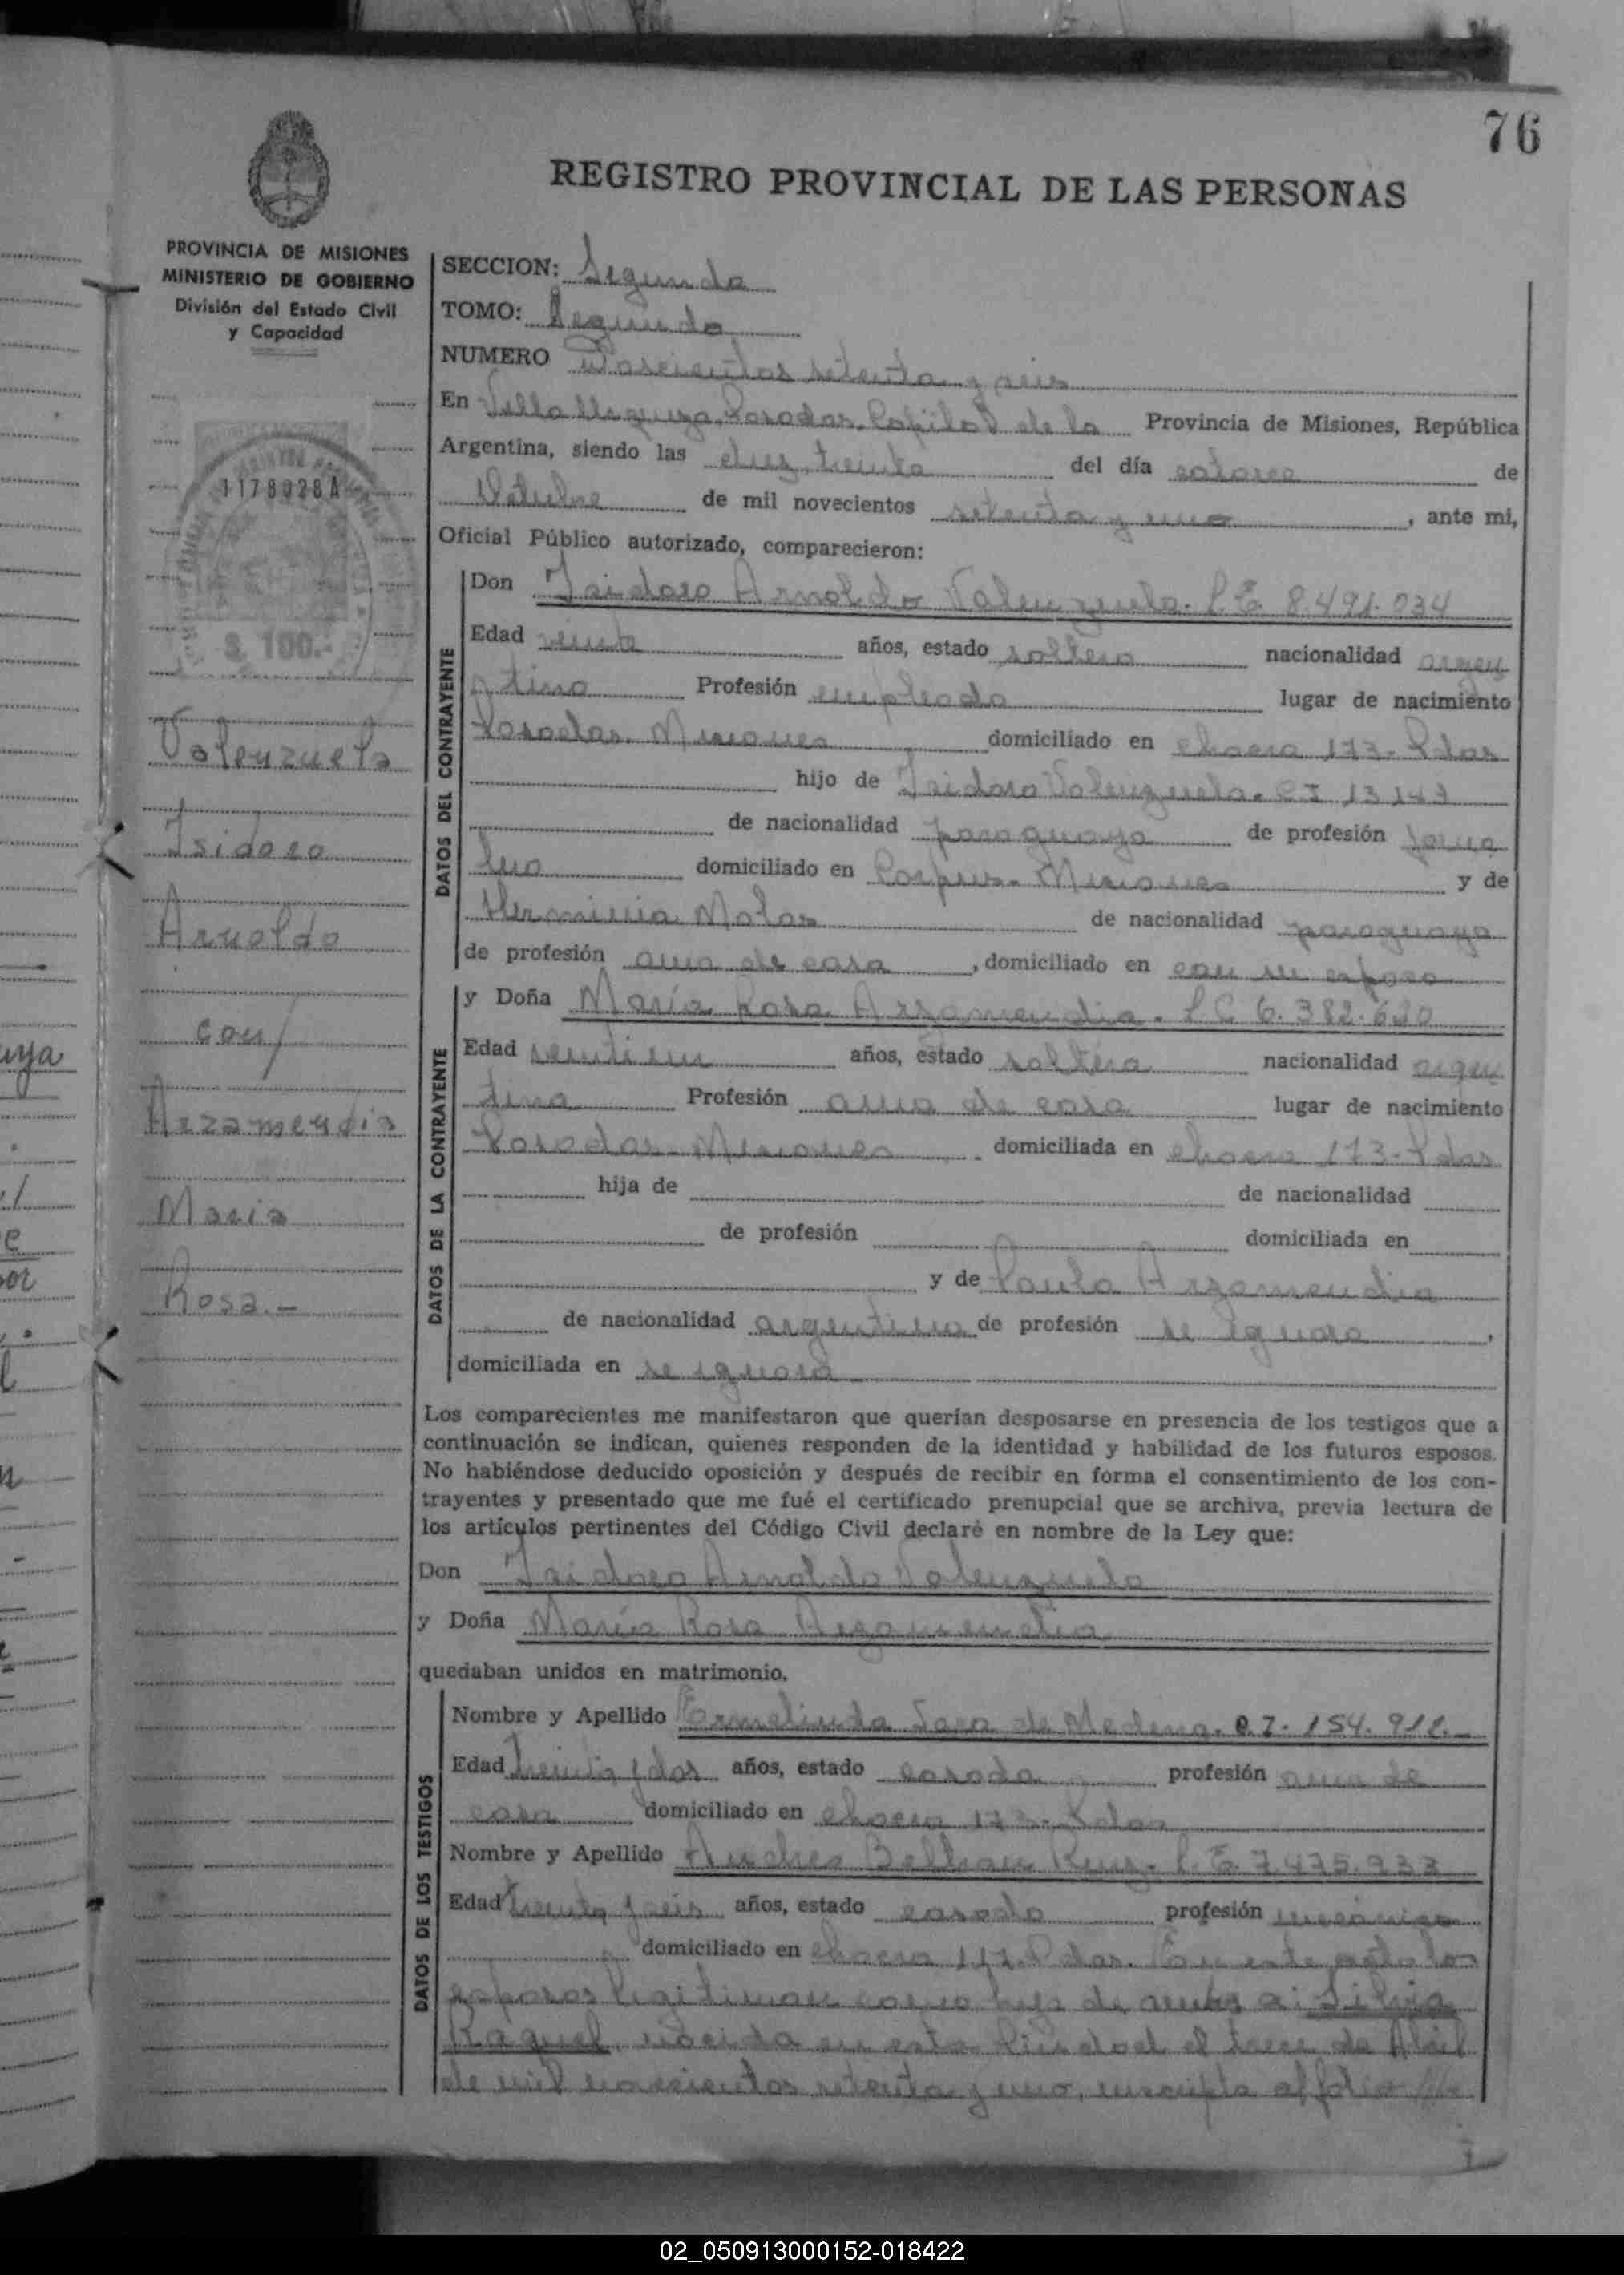 76
REGISTRO PROVINCIAL DE LAS PERSONAS
PROVINCIA DE MISIONES
MINISTERIO DE GOBIERNO
División del Estado Civil
y Capacidad
1178028A
$ 100.-
Valenzuela
Isidoro
Arnoldo
con/
Arzamendia
María
Rosa.-
SECCION: Segunda
TOMO: Segundo
NUMERO Doscientos setenta y seis
En Villa Urquiza, Posadas, Capital de la Provincia de Misiones, República
Argentina, siendo las diez treinta del día catorce de
Octubre de mil novecientos setenta y uno, ante mi,
Oficial Público autorizado, comparecieron:
DATOS DEL CONTRAYENTE
Don Isidoro Arnoldo Valenzuela. L.E. 8.491.034
Edad veinte años, estado soltero nacionalidad argen
tino Profesión empleado lugar de nacimiento
Posadas. Misiones domiciliado en chacra 173- Pdas
hijo de Isidoro Valenzuela. C.I 13143
de nacionalidad paraguaya de profesión jorna
lero domiciliado en Corpus. Misiones y de
Herminia de nacionalidad paraguaya
de profesión ama de casa, domiciliado en con su esposo
DATOS DE LA CONTRAYENTE
y Doña María Rosa Arzamendia. L.C 6.382.620
Edad veintiun años, estado soltera nacionalidad argen
tina Profesión ama de casa lugar de nacimiento
Posadas- Misiones domiciliada en chacra 173- Pdas
hija de de nacionalidad
de profesión domiciliada en
y de Paula Arzamendia
de nacionalidad argentina de profesión se ignora,
domiciliada en se ignora
Los comparecientes me manifestaron que querían desposarse en presencia de los testigos que a
continuación se indican, quienes responden de la identidad y habilidad de los futuros esposos.
No habiéndose deducido oposición y después de recibir en forma el consentimiento de los con-
trayentes y presentado que me fué el certificado prenupcial que se archiva, previa lectura de
los artículos pertinentes del Código Civil declaré en nombre de la Ley que:
Don Isidoro Arnoldo Valenzuela
y Doña María Rosa Arzamendia
quedaban unidos en matrimonio.
DATOS DE LOS TESTIGOS
Nombre y Apellido Ermelinda de Medina. C.I- 154.912.
Edad treinta y dos años, estado casada profesión ama de
casa domiciliado en chacra 173- Pdas
Nombre y Apellido Andres Beltran Ruiz. L.E 7.475.933
Edad treinta y seis años, estado casado profesión mecánico
domiciliado en chacra 117. Pdas. En este acto los
esposos legitiman como hija de ambos a: Silvia
Raquel, nacida en esta Ciudad el trece de Abril
de mil novecientos setenta y uno, inscripta al folio
02_050913000152-018422